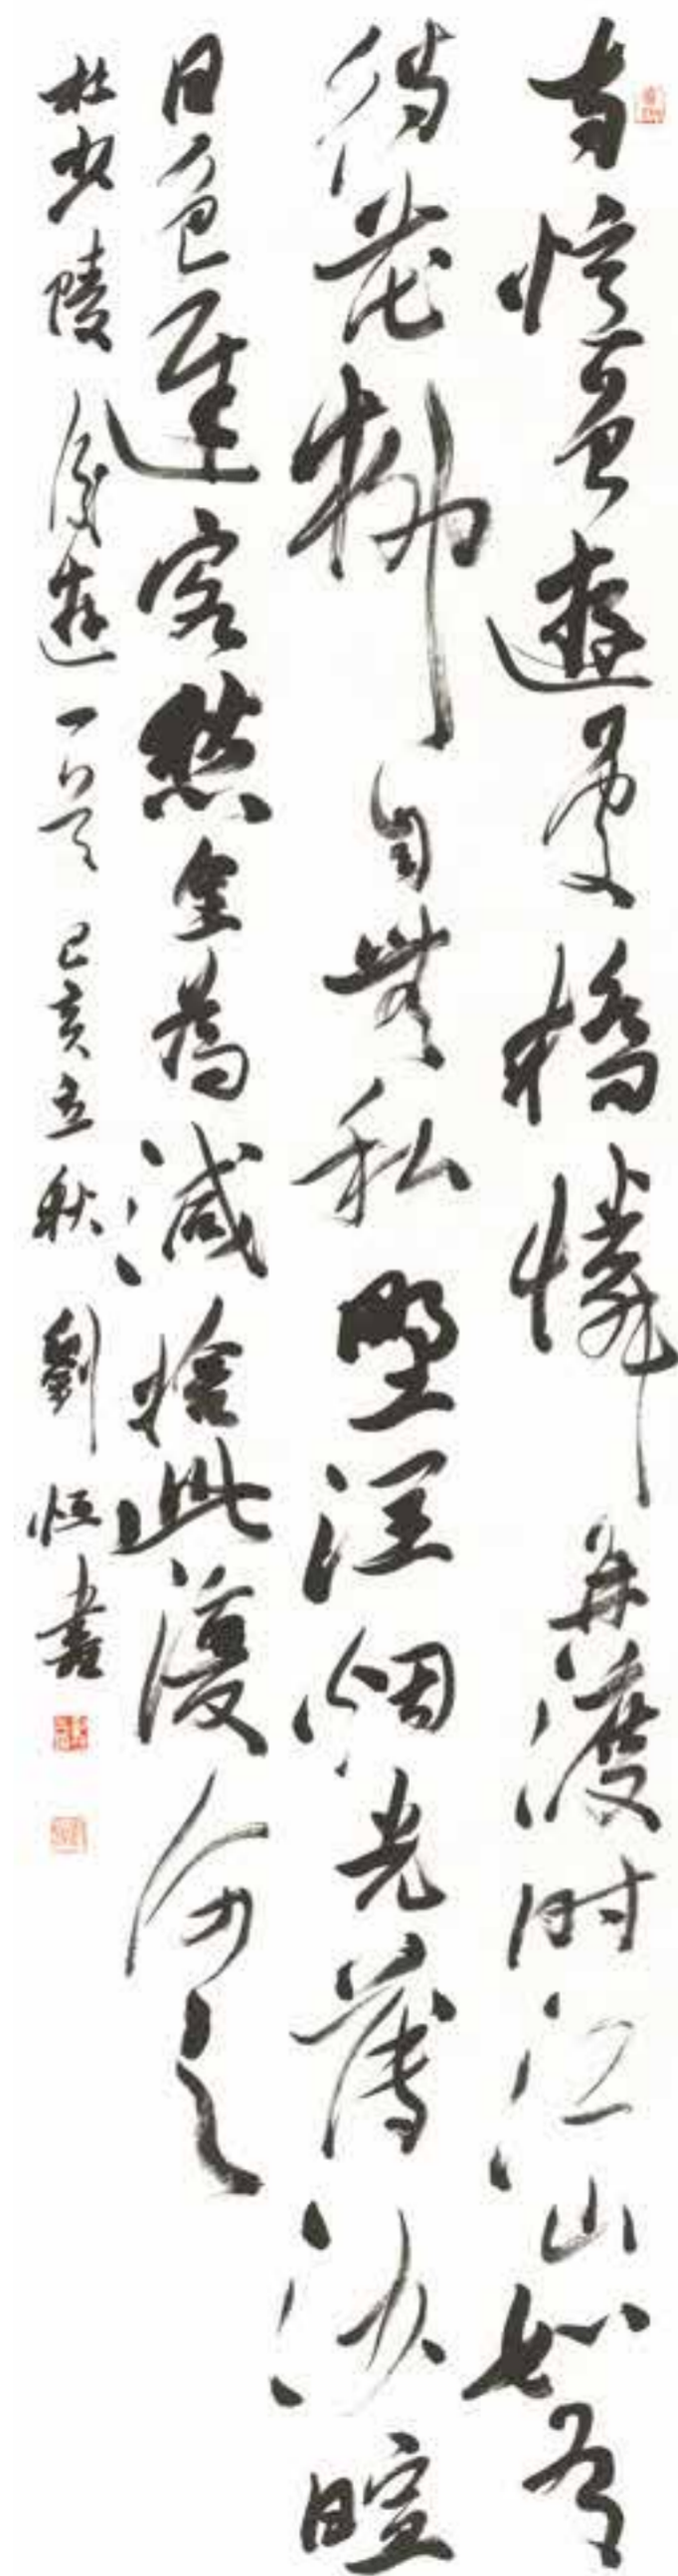 寺憶曾遊處橋憐再渡時江山如有
待花柳自無私野潤烟光薄沙暄
日色遲客愁全為減捨此復何之
杜少陵後遊一首 己亥立秋 劉恒書